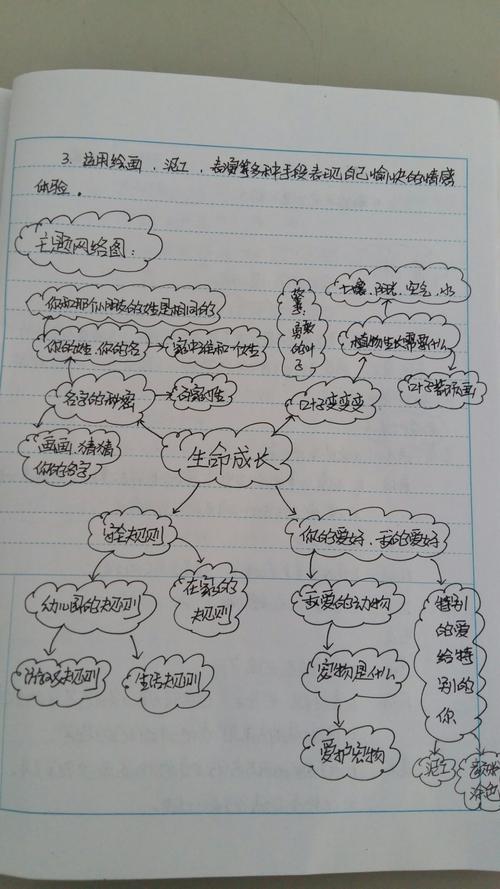 3. 运用绘画、泥工、表演等多种手段表现自己愉快的情感
体验。
主题网络图：
你和那个小朋友的姓是相同的
你的姓，你的名
家中谁和一个姓
名字的秘密
百家姓
画画,猜猜
你的名字
故事：
勇敢
的叶
子
土壤、阳光、空气、水
植物生长需要什么
叶子装饰画
叶子变变变
生命成长
规则
幼儿园的规则
在家的
规则
规则
生活规则
你的爱好，我的爱好
我爱的动物
宠物是什么
爱护宠物
特别
的爱
给特
别的
你
泥工
涂色